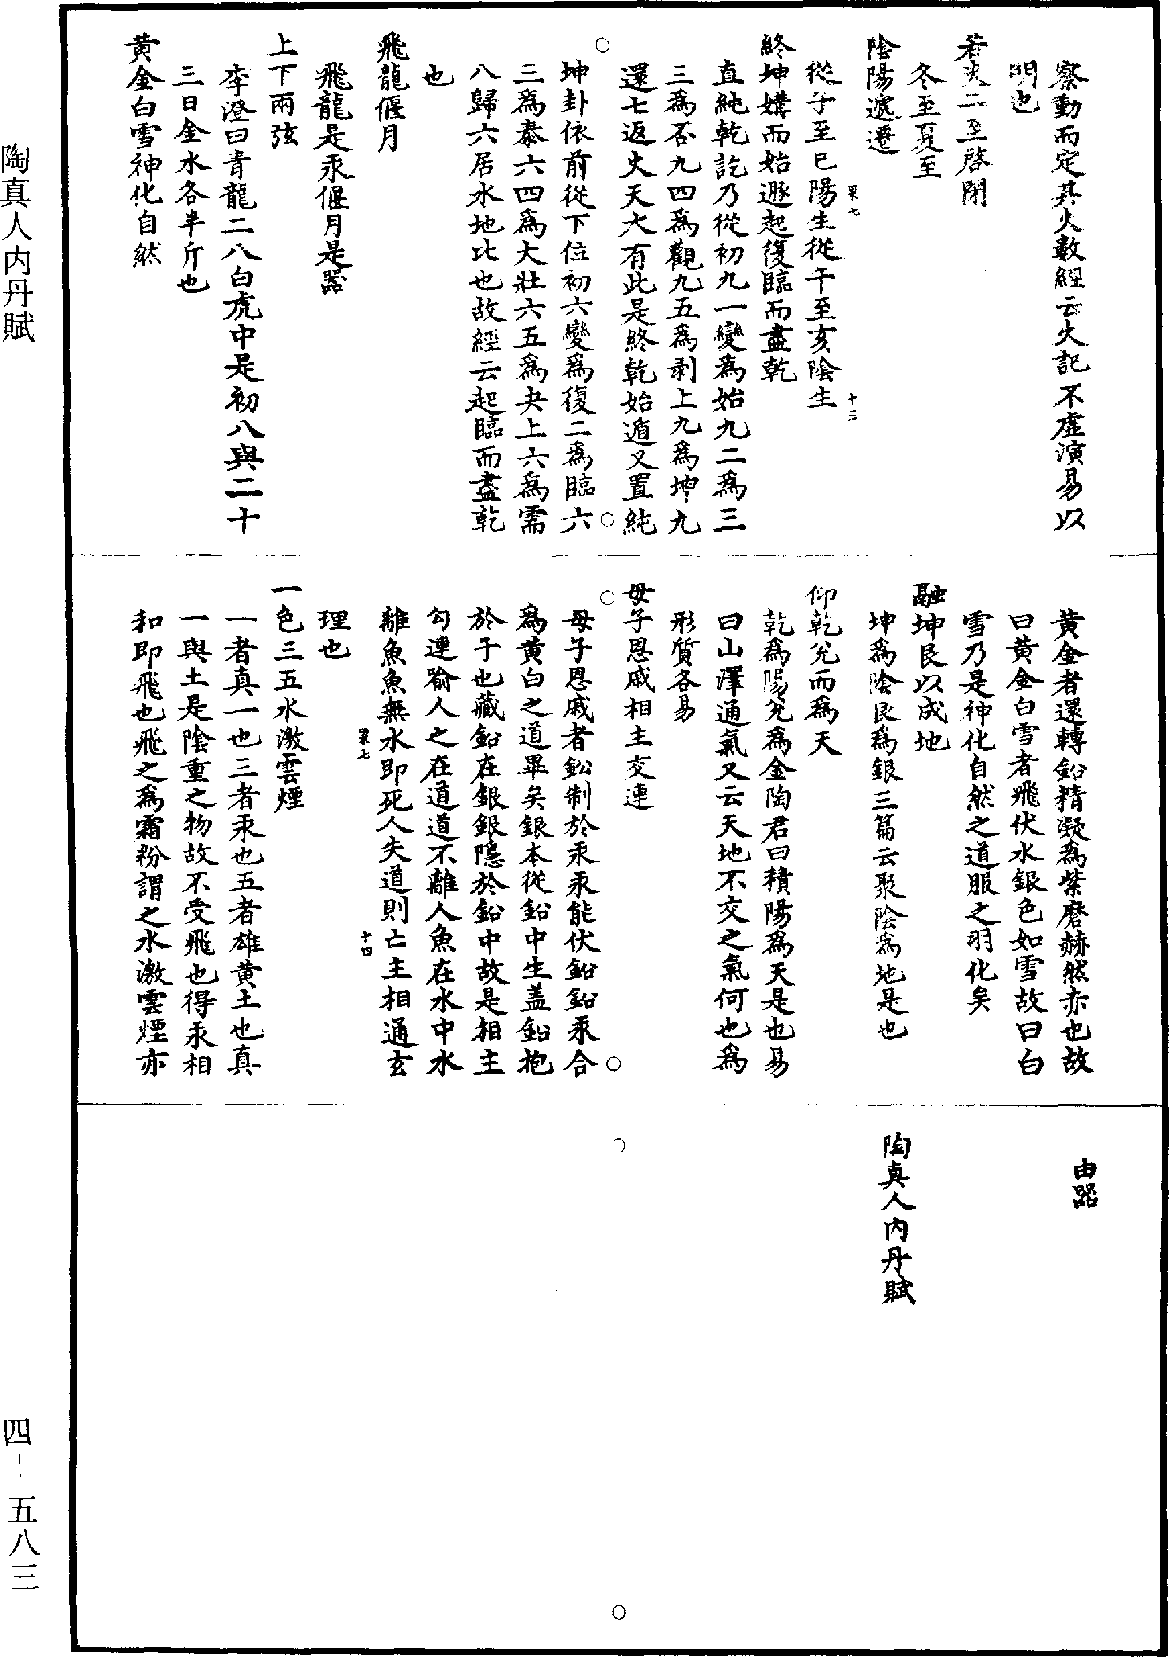 察動而定其火數經云火記不虛演易以
明也
若夫二至啓閉
冬至夏至
陰陽遞遷
從子至巳陽生從午至亥陰生
終坤媾而始遯起復臨而盡乾
直純乾訖乃從初九一變爲始九二爲三
三爲否九四爲觀九五爲剥上九爲坤九
還七返火天大有此是終乾始遁又置純
坤卦依前從下位初六變爲復二爲臨六
三爲泰六四爲大壯六五爲夬上六爲需
八歸六居水地比也故經云起臨而盡乾
也
飛龍偃月
飛龍是汞偃月是器
上下兩弦
李澄曰青龍二八白虎中是初八與二十
三日金水各半斤也
黃金白雪神化自然
黃金者還轉鉛精凝爲紫磨赫然赤也故
曰黃金白雪者飛伏水銀色如雪故曰白
雪乃是神化自然之道服之羽化矣
融坤艮以成地
坤爲陰艮爲銀三篇云聚陰爲地是也
仰乾兌而爲天
乾爲陽兌爲金陶君曰積陽爲天是也易
曰山澤通氣又云天地不交之氣何也爲
形質各易
母子恩戚相主交連
母子恩戚者鈆制於汞汞能伏鉛鉛汞合
爲黃白之道畢矣銀本從鉛中生蓋鉛抱
於子也藏鉛在銀銀隱於鉛中故是相主
勾連踰人之在道道不離人魚在水中水
離魚魚無水即死人失道則亡主相通玄
理也
一色三五水激雲煙
一者真一也三者汞也五者雄黃土也真
一與土是陰重之物故不受飛也得汞相
和即飛也飛之爲霜粉謂之水激雲煙亦
由器
陶真人內丹賦
陶真人內丹賦
四-五八三